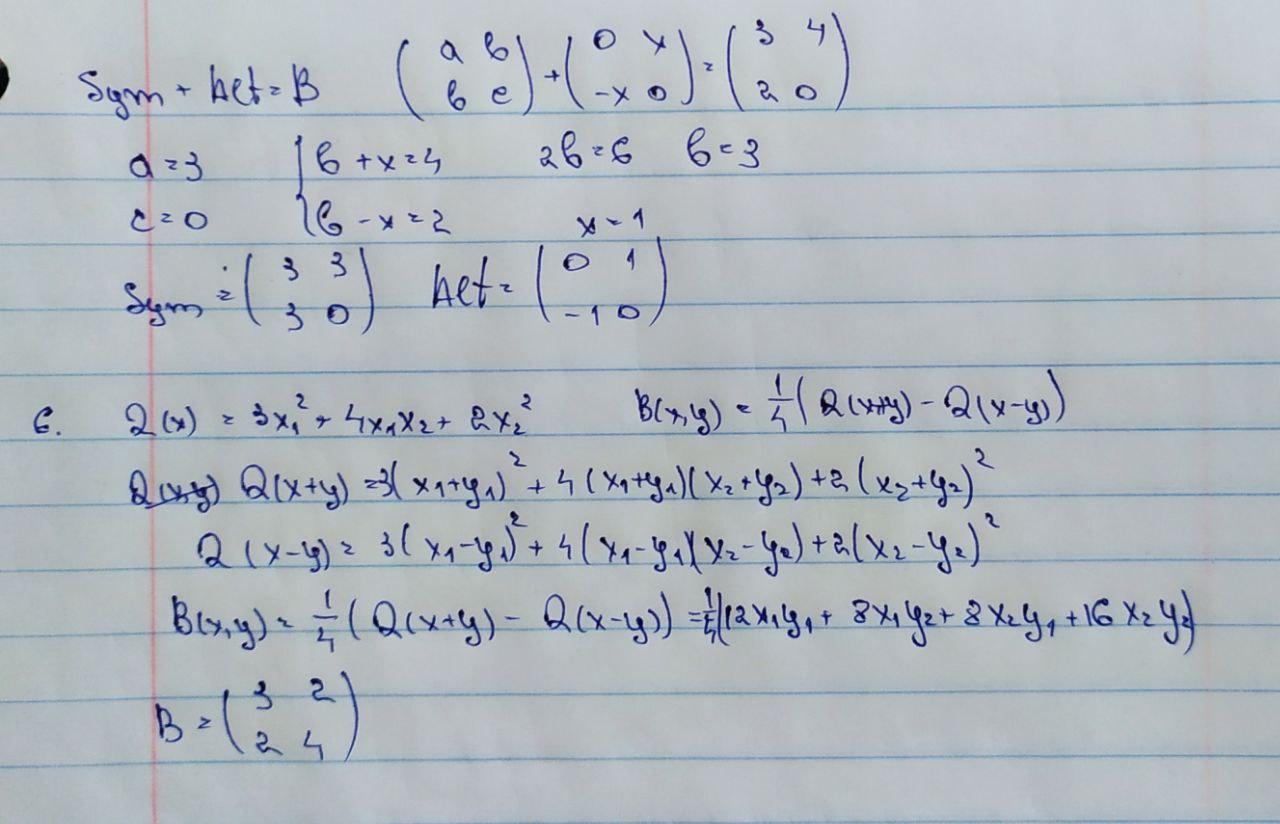 Sym + Alt = B ( a b ; b c ) + ( 0 x ; -x 0 ) = ( 3 4 ; 2 0 )
a = 3 { b + x = 4 2b = 6 b = 3
c = 0 { b - x = 2 x = 1
Sym = ( 3 3 ; 3 0 ) Alt = ( 0 1 ; -1 0 )
6. Q(x) = 3x₁² + 4x₁x₂ + 2x₂² B(x,y) = 1/4 ( Q(x+y) - Q(x-y) )
Q(x+y) = 3(x₁+y₁)² + 4(x₁+y₁)(x₂+y₂) + 2(x₂+y₂)²
Q(x-y) = 3(x₁-y₁)² + 4(x₁-y₁)(x₂-y₂) + 2(x₂-y₂)²
B(x,y) = 1/4 ( Q(x+y) - Q(x-y) ) = 1/4 (12x₁y₁ + 8x₁y₂ + 8x₂y₁ + 16x₂y₂)
B = ( 3 2 ; 2 4 )